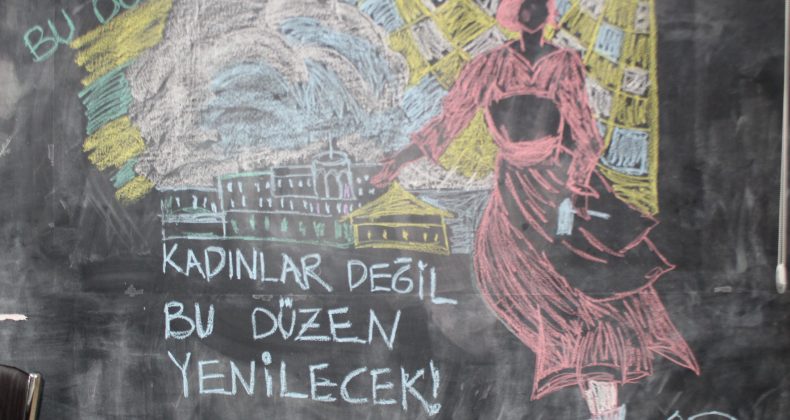 BU
KADINLAR DEĞİL
BU DÜZEN
YENİLECEK!